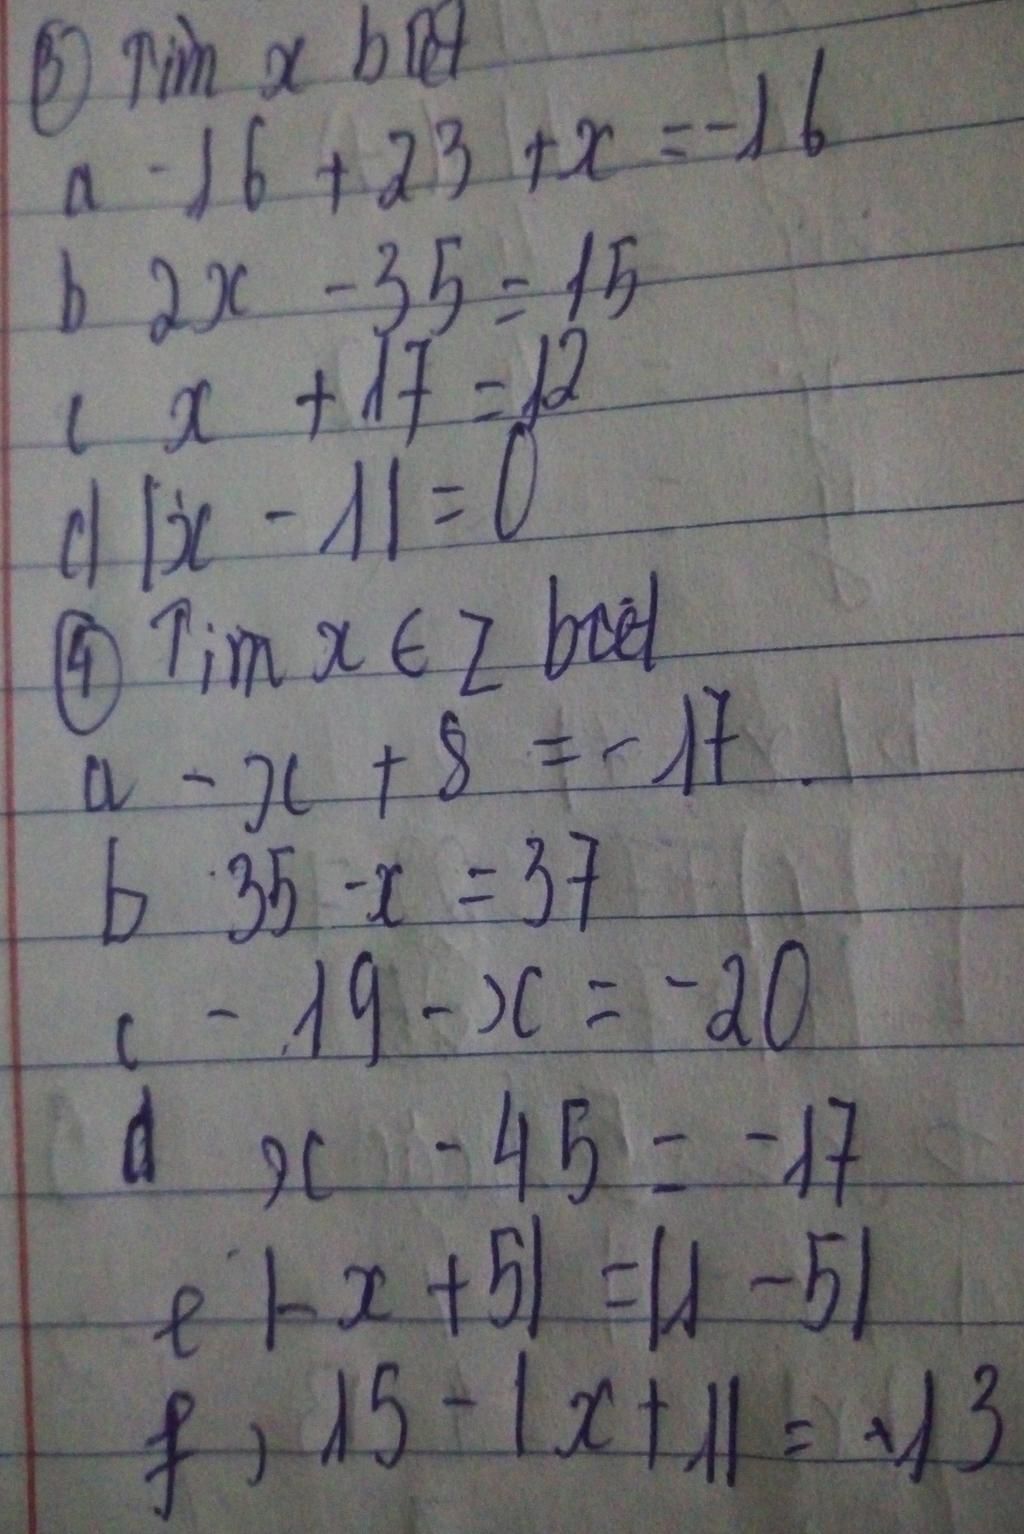 ③ Tìm x biết
a -16 + 23 + x = -16
b 2x - 35 = 15
c x + 17 = 12
d |x - 1| = 0
④ Tìm x ∈ Z biết
a - x + 8 = - 17
b 35 - x = 37
c - 19 - x = -20
d x - 45 = -17
e |- x + 5| = |1 - 5|
f, 15 - |x + 1| = 13